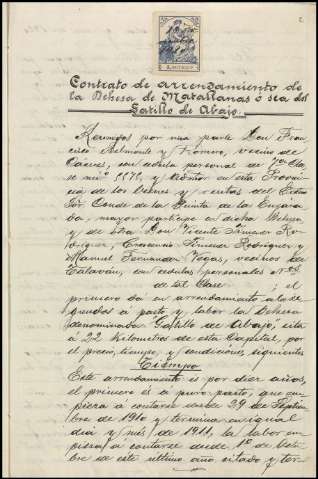 Contrato de arrendamiento de
la Dehesa de Matallanas ó sea del
Gatillo de Abajo.
Reunidos por una parte Don Fran
cisco Belmonte y Romero, vecino de
Cáceres, con cédula personal de 7ª cla
se nº y en esta Provin
cia de los bienes y rentas del Exmo
Sor Conde de la Quinta de la Enjara
da, mayor partícipe en dicha dehesa
y de otra Don Vicente Jimenez Ro
driguez, Jimenez Rodriguez y
Manuel Fernandez Vegas, vecinos de
Talaván, con cédulas personales nº
de 11ª clase ; el
primero da en arrendamiento a los se
gundos á pasto y labor la dehesa
denominada "Gatillo de Abajo", sita
á 22 kilometros de esta Capital, por
el precio, tiempo y condiciones siguientes
Tiempo
Este arrendamiento es por diez años,
el primero es a puro pasto, que em
pieza á contarse desde 29 de Septiem
bre de 1910 y termina en igual
dia y mes de 1911, la labor em
pieza á contarse desde 1º de Octu
bre de este último año citado y ter-